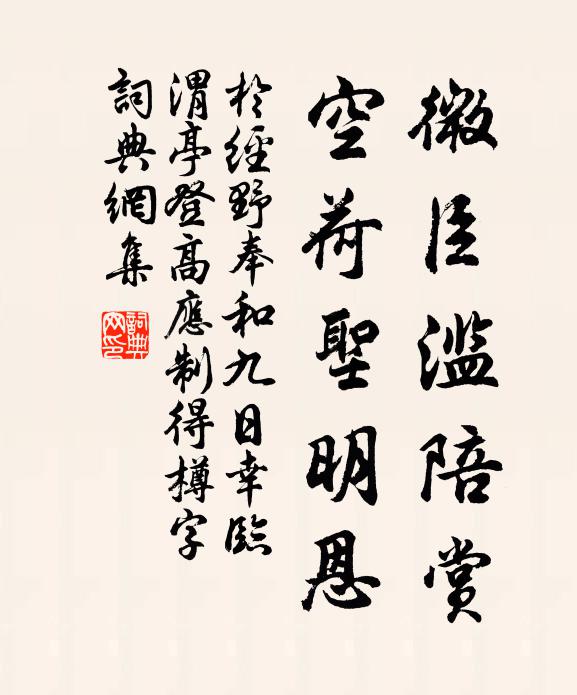 微臣滥陪赏
空荷聖明恩
於經野奉和九日幸臨
渭亭登高應制得樽字
詞典網集
詞典
网印